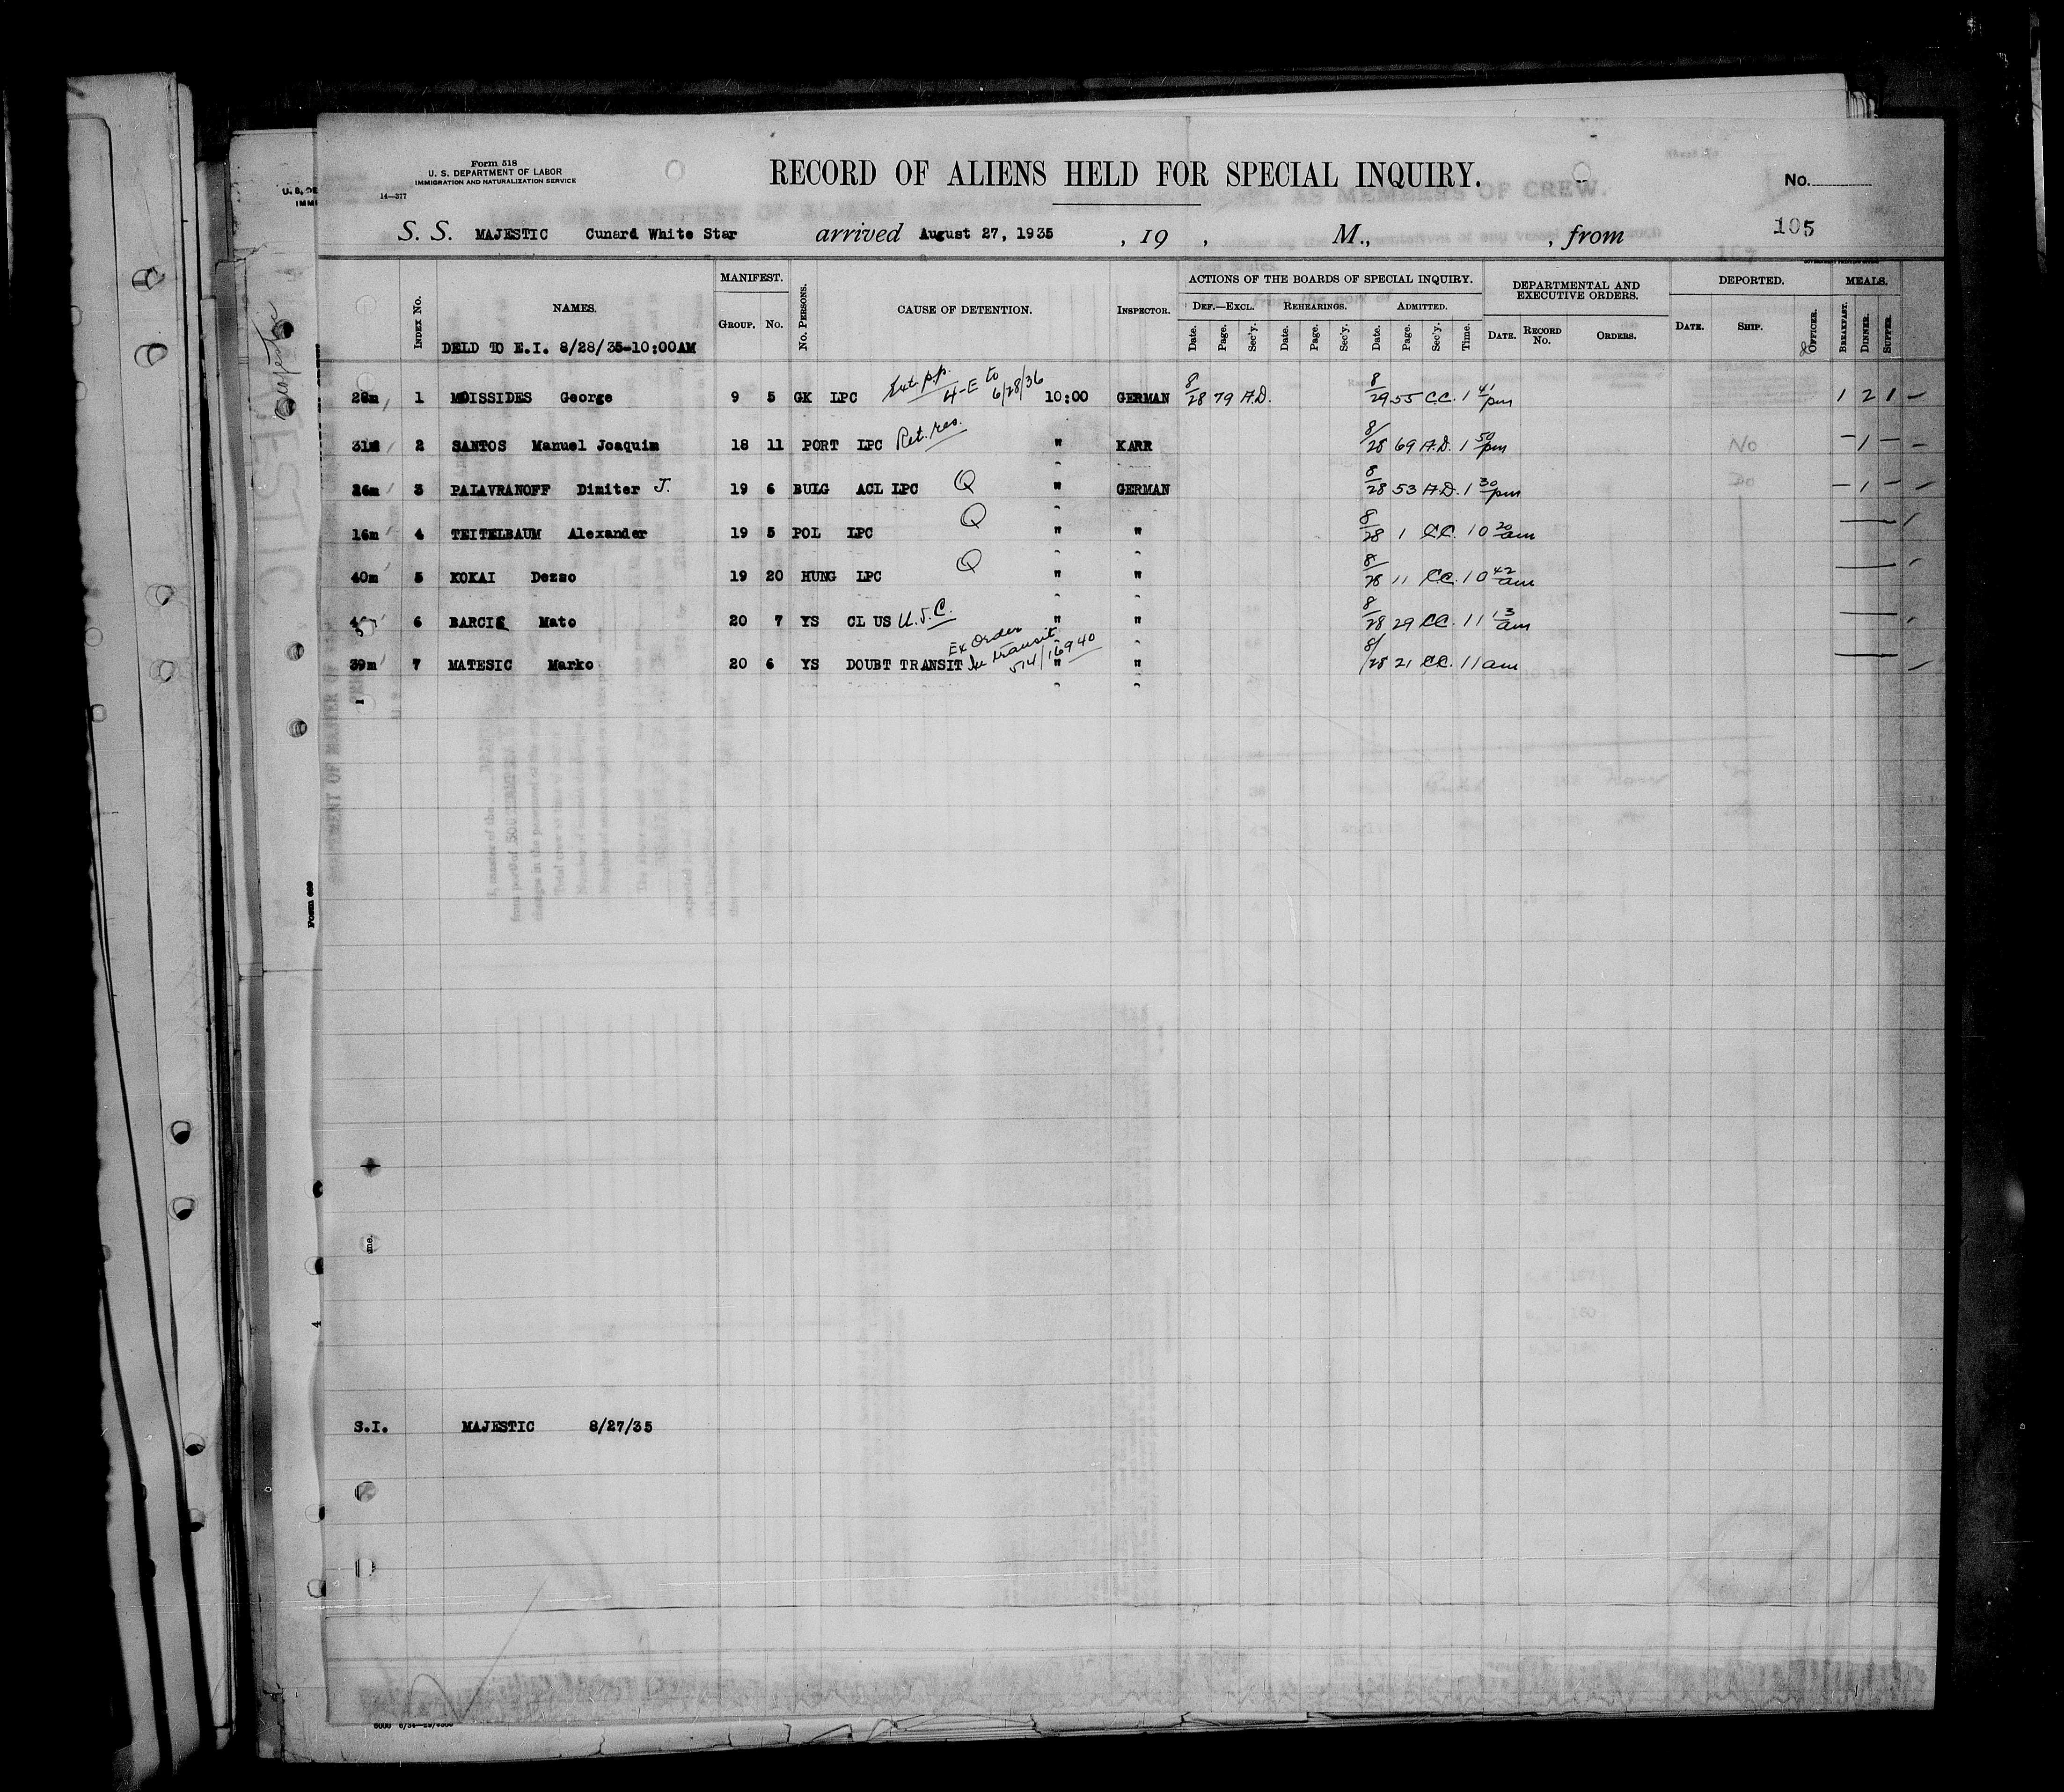 Form 518
U. S. DEPARTMENT OF LABOR
IMMIGRATION AND NATURALIZATION SERVICE
14—377
RECORD OF ALIENS HELD FOR SPECIAL INQUIRY.
No.
S. S. MAJESTIC Cunard White Star arrived August 27, 1935 , 19 , M., , from 105
INDEX No. NAMES. MANIFEST. GROUP. No. No. PERSONS. CAUSE OF DETENTION. INSPECTOR. ACTIONS OF THE BOARDS OF SPECIAL INQUIRY. DEPARTMENTAL AND EXECUTIVE ORDERS. DEPORTED. MEALS.
DEF.—EXCL. REHEARINGS. ADMITTED.
Date. Page. Sec'y. Date. Page. Sec'y. Date. Page. Sec'y. Time. DATE. RECORD No. ORDERS. DATE. SHIP. OFFICER. BREAKFAST. DINNER. SUPPER.
DELD TO E.I. 8/28/35-10:00AM
28m 1 MOISSIDES George 9 5 GK LPC 4-E to 6/28/36 10:00 GERMAN 8/28 79 A.D. 8/29 55 C.C. 1 41 pm 1 2 1 —
31m 2 SANTOS Manuel Joaquim 18 11 PORT LPC Ret. res. " KARR 8/28 69 A.D. 1 50 pm — 1 — —
26m 3 PALAVRANOFF Dimiter J. 19 6 BULG ACL LPC Q " GERMAN 8/28 53 A.D. 1 30 pm — 1 — —
16m 4 TEITELBAUM Alexander 19 5 POL LPC Q " " 8/28 1 C.C. 10 20 am
40m 5 KOKAI Dezso 19 20 HUNG LPC Q " " 8/28 11 C.C. 10 42 am
6 BARCIE Mato 20 7 YS CL US U.S.C. " " 8/28 29 C.C. 11 13 am
39m 7 MATESIC Marko 20 6 YS DOUBT TRANSIT Ex Order In transit 514/16940 " " 8/28 21 C.C. 11 am
S.I. MAJESTIC 8/27/35